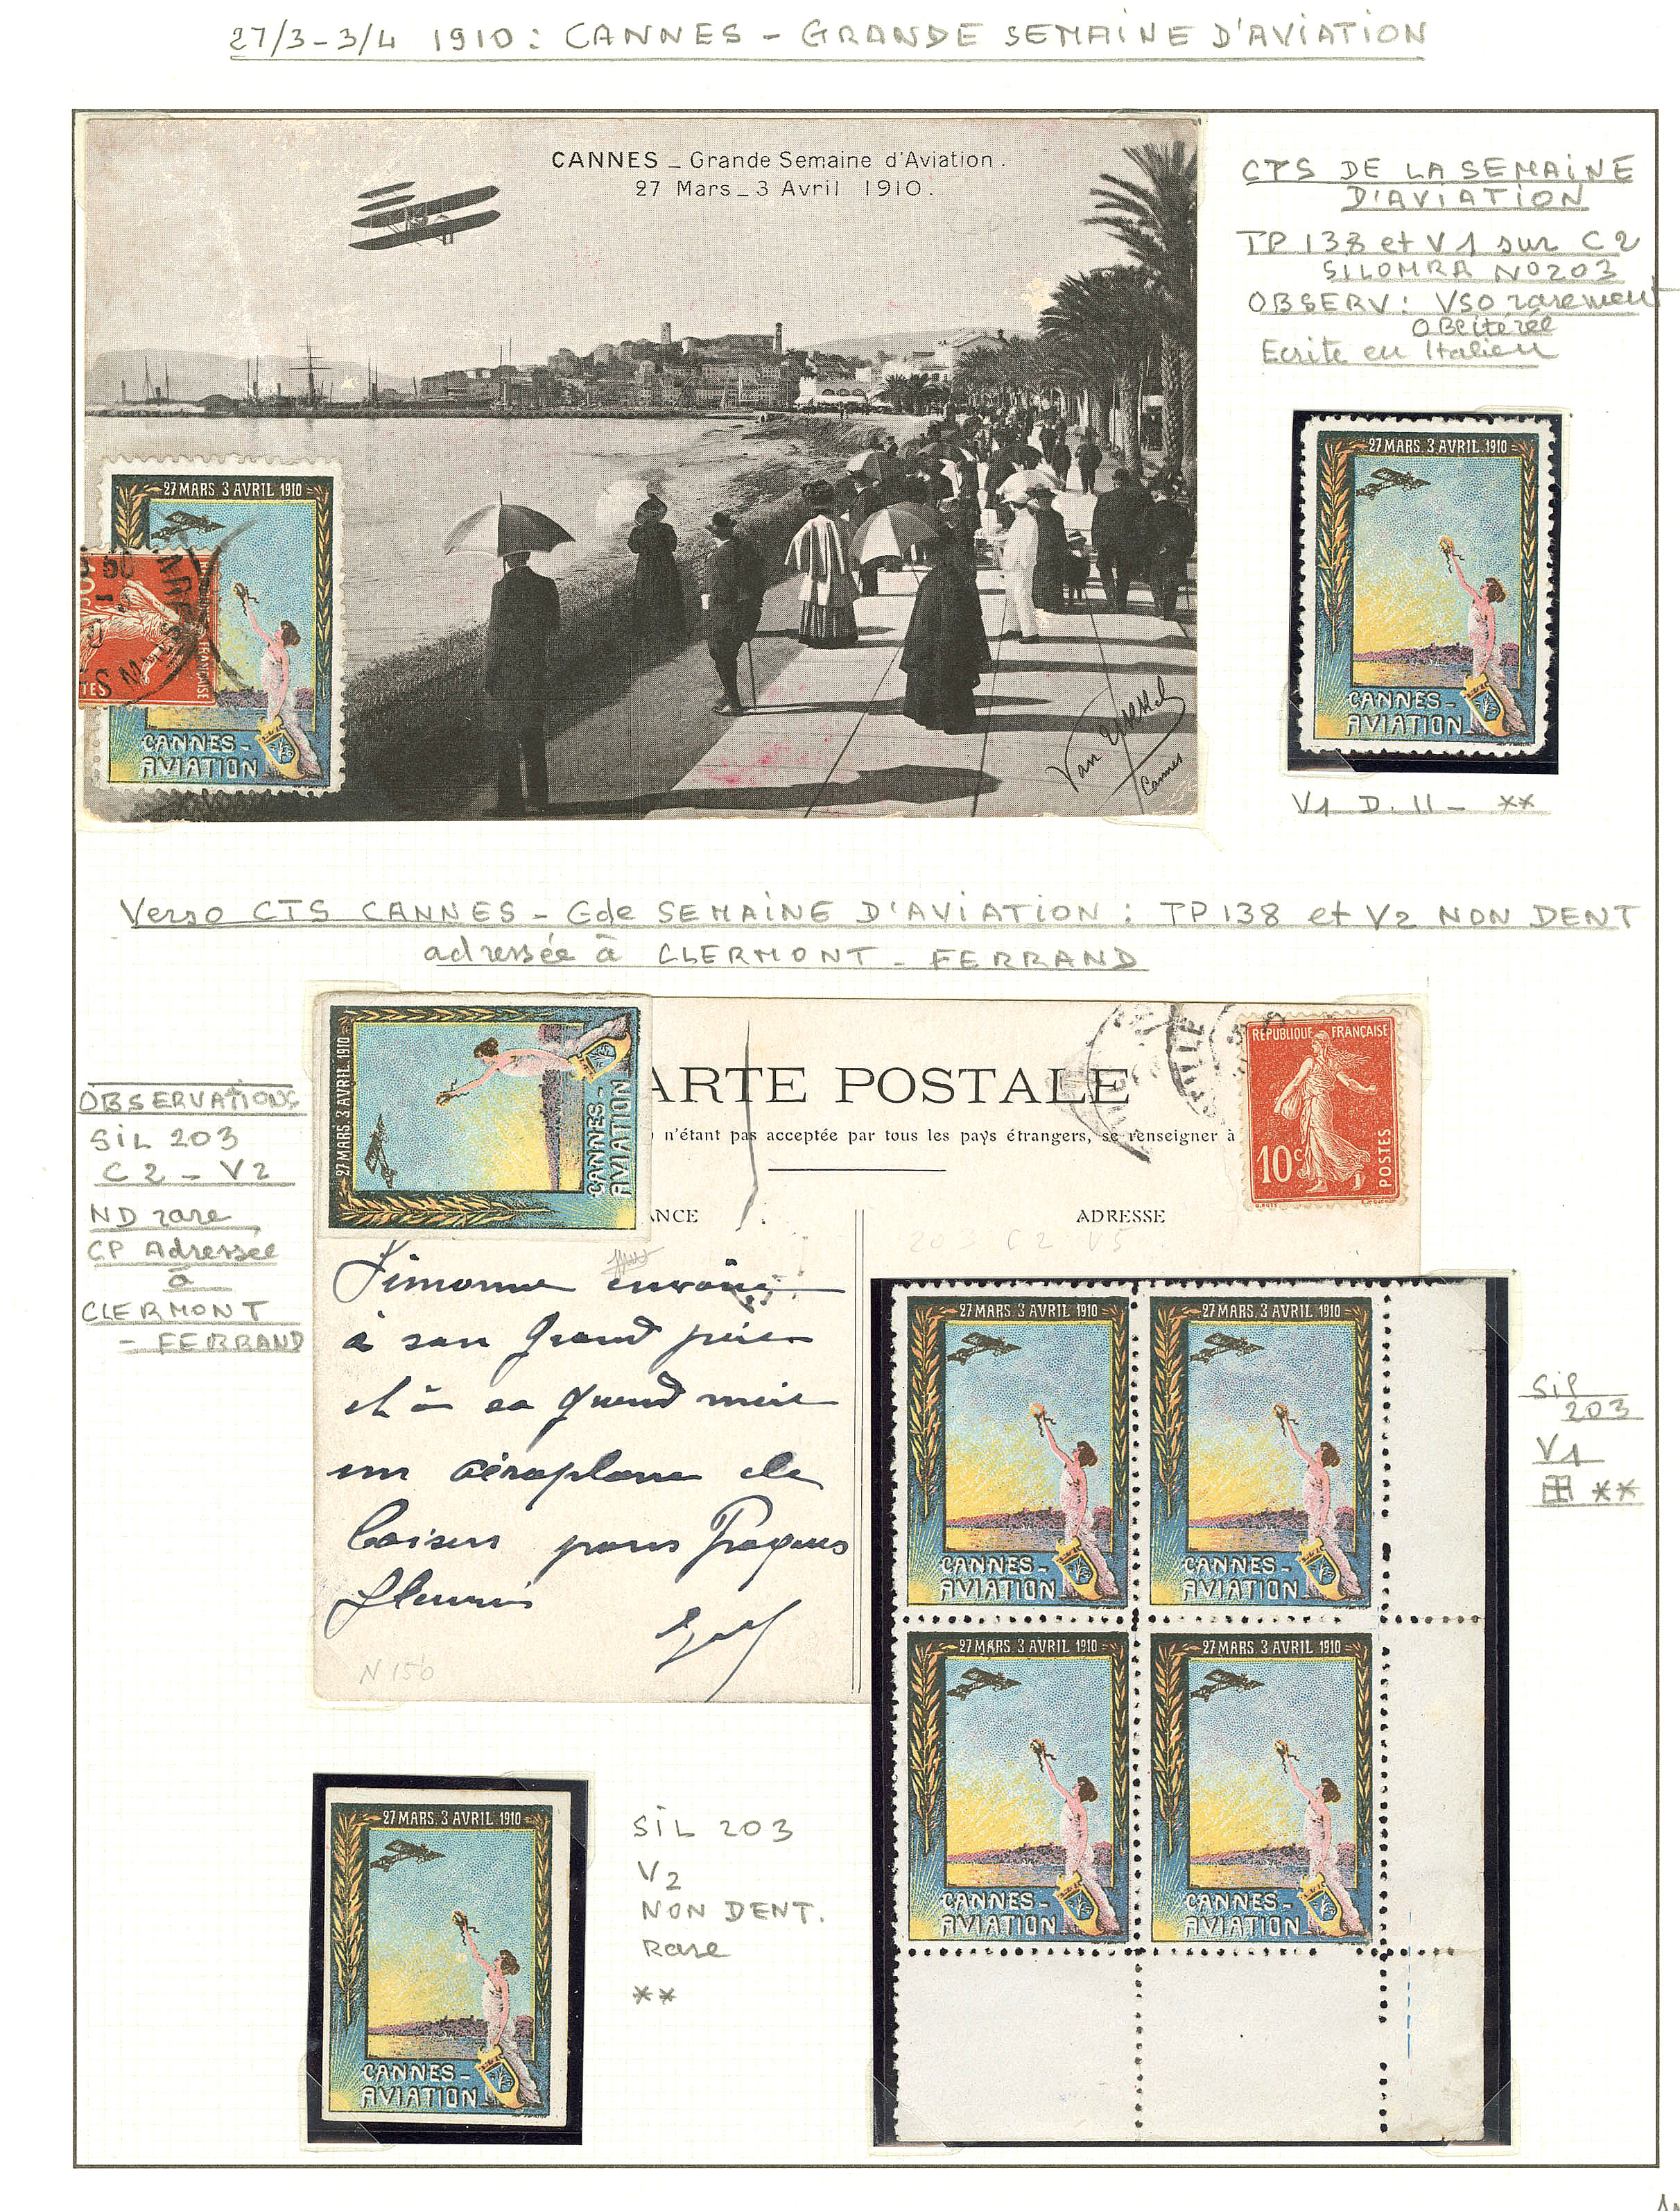 27/3-3/4 1910: CANNES - GRANDE SEMAINE D'AVIATION
CANNES _ Grande Semaine d'Aviation.
27 Mars _ 3 Avril 1910.
Cannes
27 MARS. 3 AVRIL 1910
FRANÇAISE
CANNES-
AVIATION
CTS DE LA SEMAINE
D'AVIATION
TP 138 et V1 sur C2
SILOMRA No203
OBSERV: VSO rarement
OBlitérée
Ecrite en Italien
27 MARS. 3 AVRIL. 1910
CANNES-
AVIATION
V1 D. 11 - **
Verso CTS CANNES - Gde SEMAINE D'AVIATION: TP138 et V2 NON DENT
adressée à CLERMONT - FERRAND
OBSERVATIONS
SIL 203
C2 - V2
ND rare
CP Adressée
à
CLERMONT
- FERRAND
27 MARS. 3 AVRIL. 1910
CANNES-
AVIATION
ARTE POSTALE
n'étant pas acceptée par tous les pays étrangers, se renseigner à
ANCE
ADRESSE
REPUBLIQUE FRANÇAISE
10c
POSTES
203 C2 V5
Simonne envoie
à son Grand père
et à sa Grand mère
un aéroplane de
baisers pour Paques
fleuries
N 150
27 MARS. 3 AVRIL 1910
CANNES-
AVIATION
27 MARS. 3 AVRIL 1910
CANNES-
AVIATION
27 MARS. 3 AVRIL 1910
CANNES-
AVIATION
27 MARS. 3 AVRIL 1910
CANNES-
AVIATION
Sil
203
V1
**
27 MARS. 3 AVRIL. 1910
CANNES-
AVIATION
SIL 203
V2
NON DENT.
Rare
**